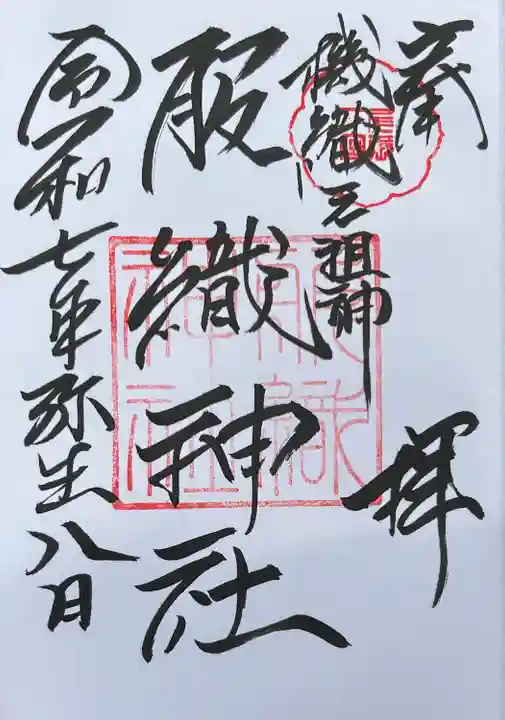 奉拝
機織の祖神
服織神社
服織神社
令和七年弥生八日